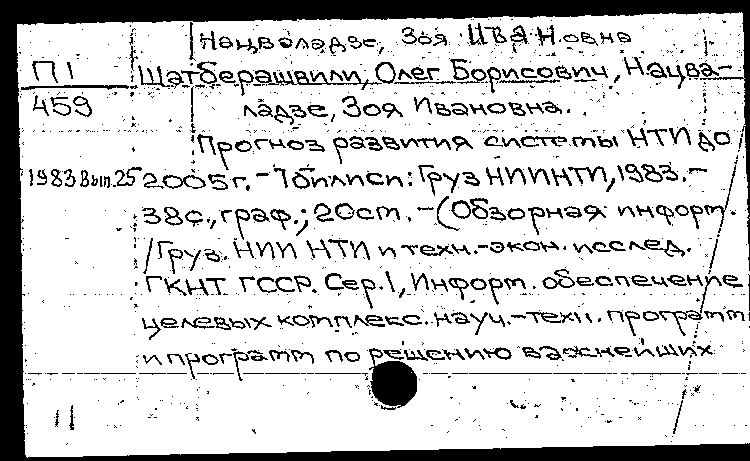 Нацваладзе, Зоя Ивановна
П1 Шатберашвили, Олег Борисович, Нацва-
459 ладзе, Зоя Ивановна.
Прогноз развития системы НТИ до
1983 Вып.25 2005г. - Тбилиси: Груз НИИНТИ, 1983. -
38с., граф.; 20см. - (Обзорная информ.
/Груз. НИИ НТИ и техн.-экон. исслед.
ГКНТ ГССР. Сер.1, Информ. обеспечение
целевых комплекс. науч.-техн. программ
и программ по решению важнейших
11